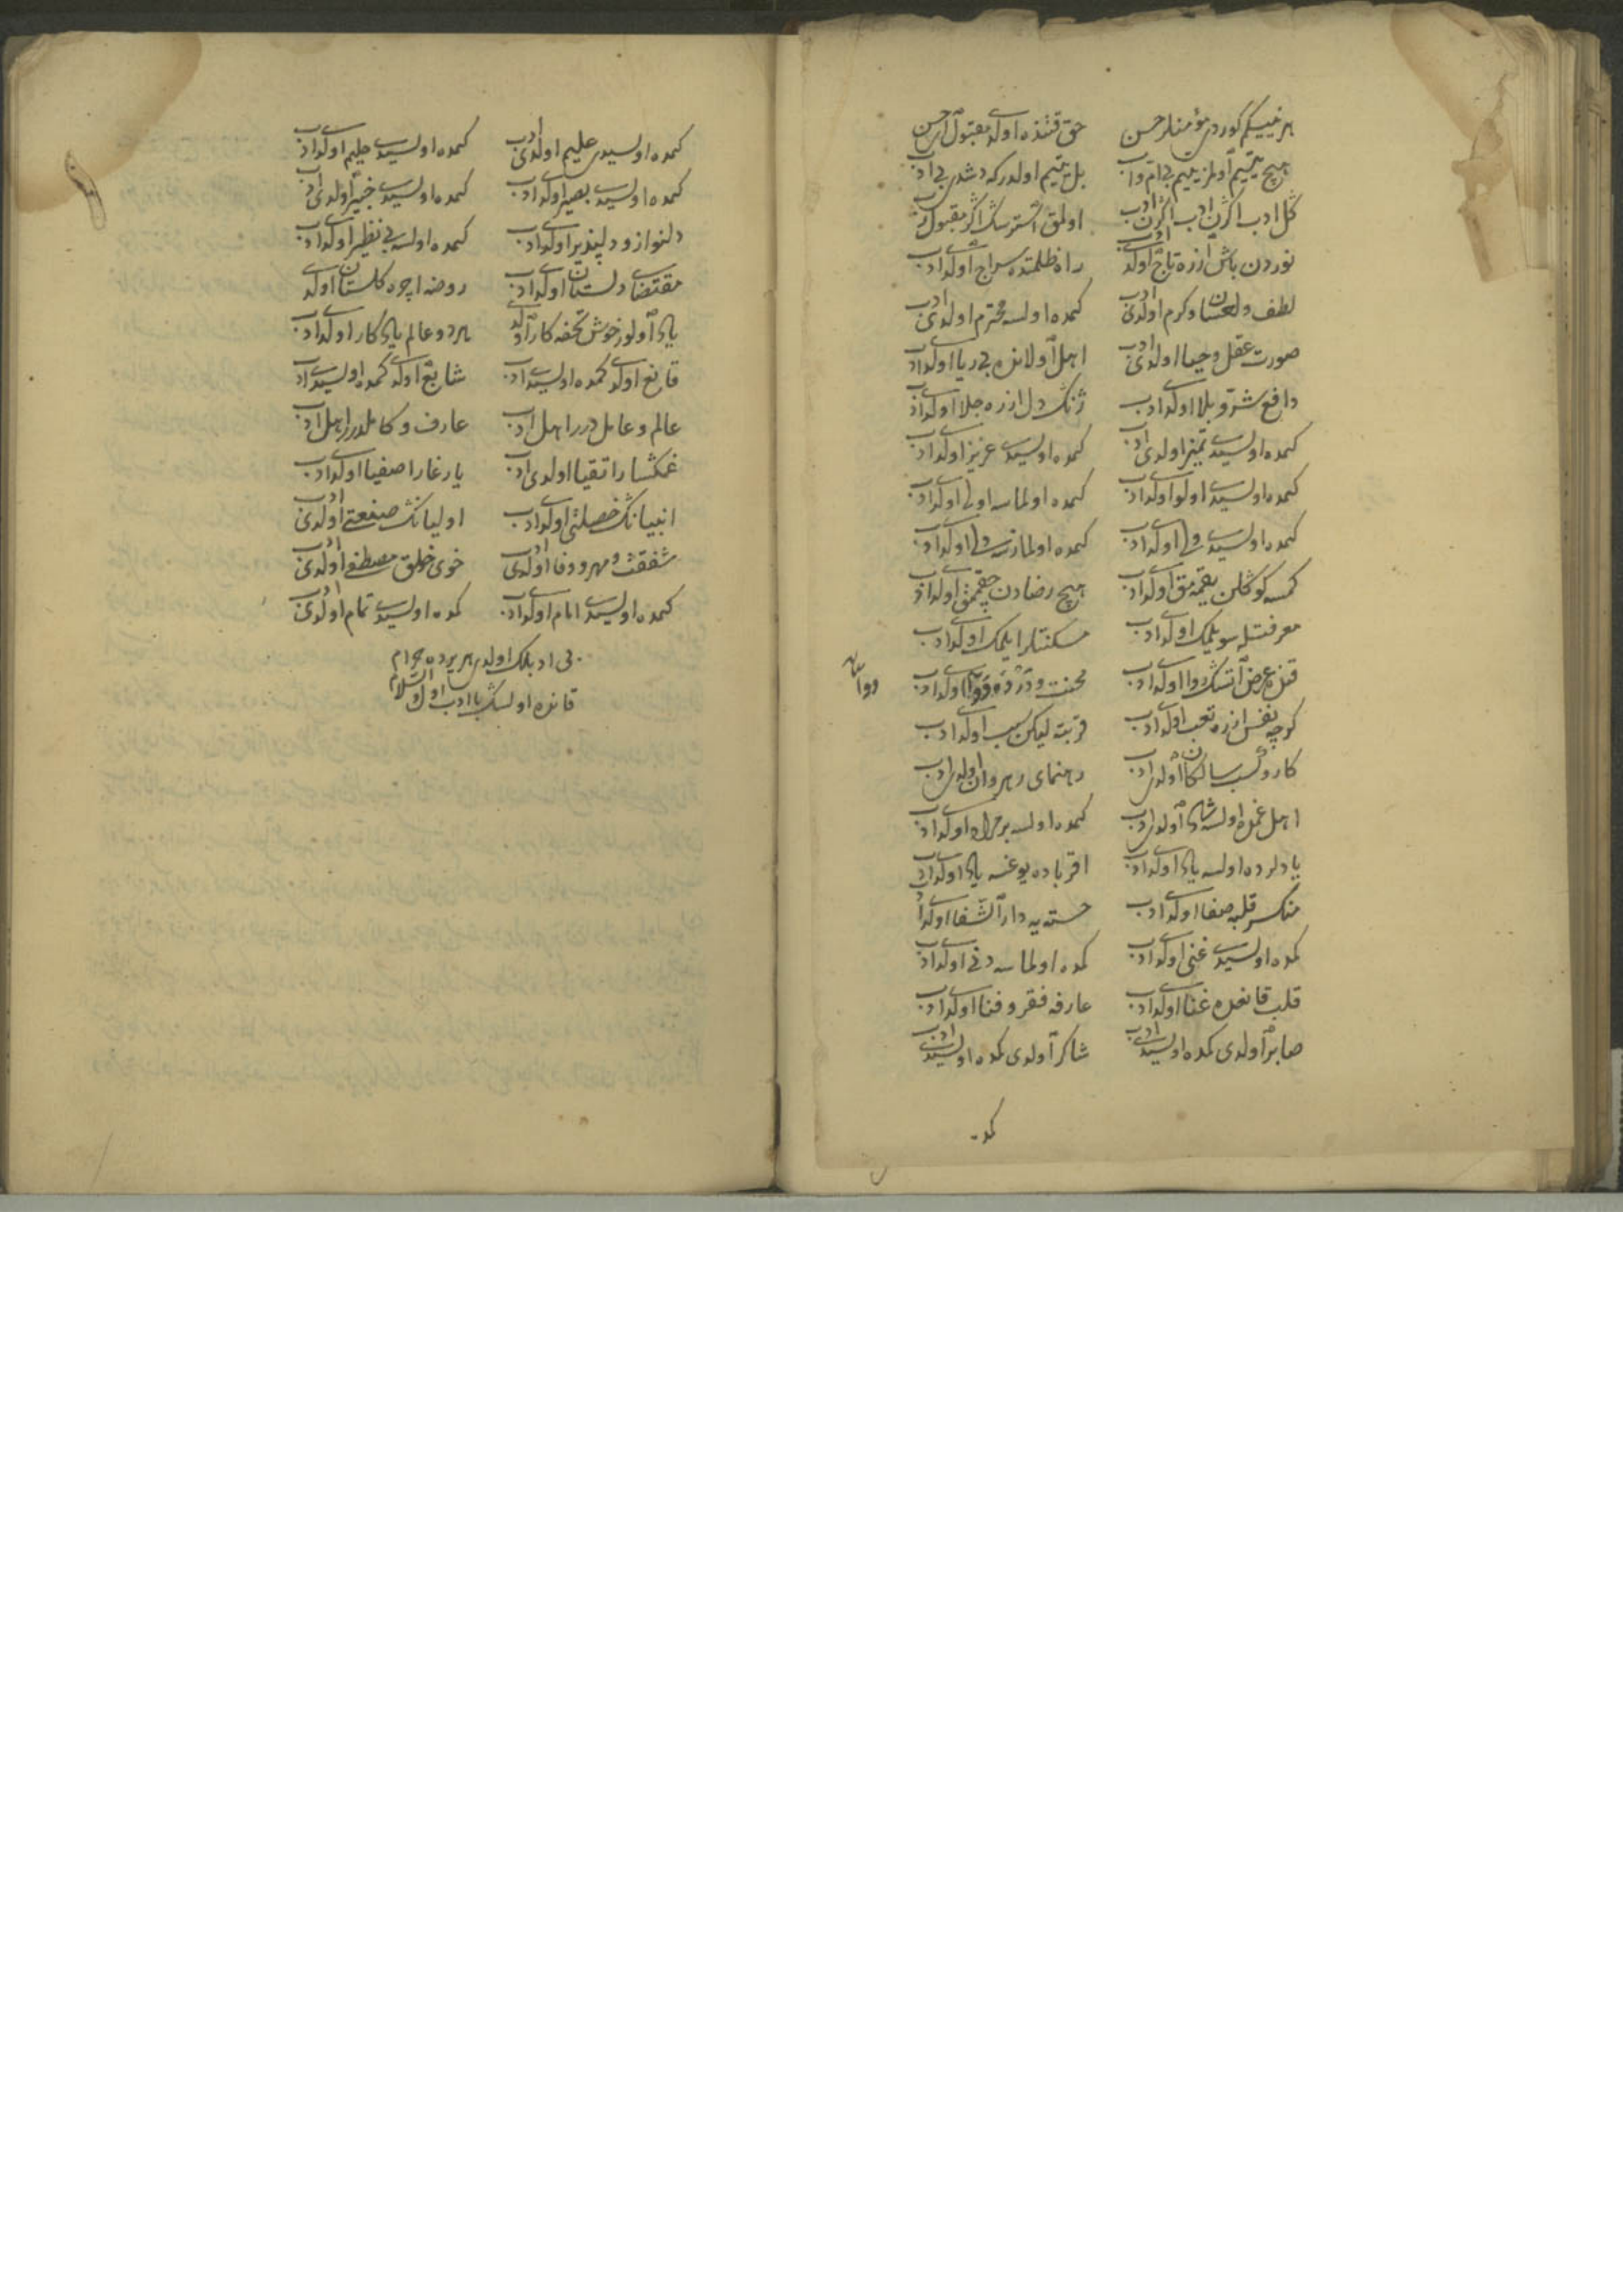 هر نییكم كوردی مؤمنلر حسن حق قتنده اولدی مقبول حسن
هیچ یتیم اولمز یتیم بی ام و اب بل یتیم اولدر كه دشدی بی ادب
كل ادب اكرن ادب اكرن ادب اولمق استرسك اكر مقبول رب
نوردن باش ازره تاج اولدی ادب راه ظلمتده سراج اولدی ادب
لطف و احسان و كرم اولدی ادب كمده اولسه محترم اولدی ادب
صورت عقل و حیا اولدی ادب اهل اولانده بی ریا اولدی ادب
دافع شر و بلا اولدی ادب ژنك دل ازره جلا اولدی ادب
كمده اولسیدی تمیز اولدی ادب كمده اولسیدی عزیز اولدی ادب
كمده اولسیدی اولو اولدی ادب كمده اولماسه اولی اولدی ادب
كمده اولسیدی ولی اولدی ادب كمده اولمازسه ولی اولدی ادب
كمسه كوكلن یقممق اولدی ادب هیچ رضادن چقممق اولدی ادب
معرفتله سویلمك اولدی ادب مسكنتلر ایلمك اولدی ادب
قتل عرض اتسك روا اولدی ادب محنت و درده دوا اولدی ادب
دوا
كرچه نفس ازره تعب اولدی ادب قربته لیكن سبب اولدی ادب
كار و كسب سالكان اولدی ادب رهنمای رهروان اولدی ادب
اهل غمله اولسه شاد اولدی ادب كمده اولسه بر مراد اولدی ادب
یادلرده اولسه یاد اولدی ادب اقرباده یوغسه یاد اولدی ادب
منكسر قلبه صفا اولدی ادب خسته یه دار الشفا اولدی ادب
كمده اولسیدی غنی اولدی ادب كمده اولماسه دنی اولدی ادب
قلب قانعده غنا اولدی ادب عارفه فقر و فنا اولدی ادب
صابر اولدی كمده اولسیدی ادب شاكر اولدی كمده اولسیدی ادب
كمده
كمده اولسیدی علیم اولدی ادب كمده اولسیدی حلیم اولدی ادب
كمده اولسیدی بصیر اولدی ادب كمده اولسیدی خبیر اولدی ادب
دلنواز و دلپذیر اولدی ادب كمده اولسه بی نظیر اولدی ادب
مقتضای دلستان اولدی ادب روضه اچره كلستان اولدی
یاد اولور خوش تحفه كار اولدی هر دو عالم یادكار اولدی ادب
قانع اولدی كمده اولسیدی ادب شایع اولدی كمده اولسیدی ادب
عالم و عاملدرر اهل ادب عارف و كاملدرر اهل ادب
غمكسار اتقیا اولدی ادب یار غار اصفیا اولدی ادب
انبیانك خصلتی اولدی ادب اولیانك صنعتی اولدی ادب
شفقت و مهر و وفا اولدی ادب خوی و خلق مصطفی اولدی ادب
كمده اولسیدی امام اولدی ادب كمده اولسیدی تمام اولدی ادب
بی ادبلك اولدی هر یرده حرام
قانده اولسك با ادب اول والسلام